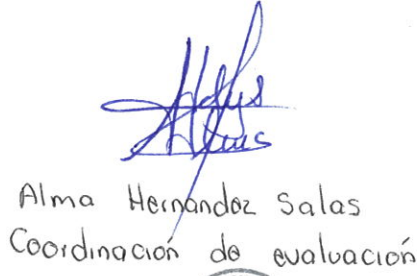 Alma Hernández Salas
Coordinación de evaluación